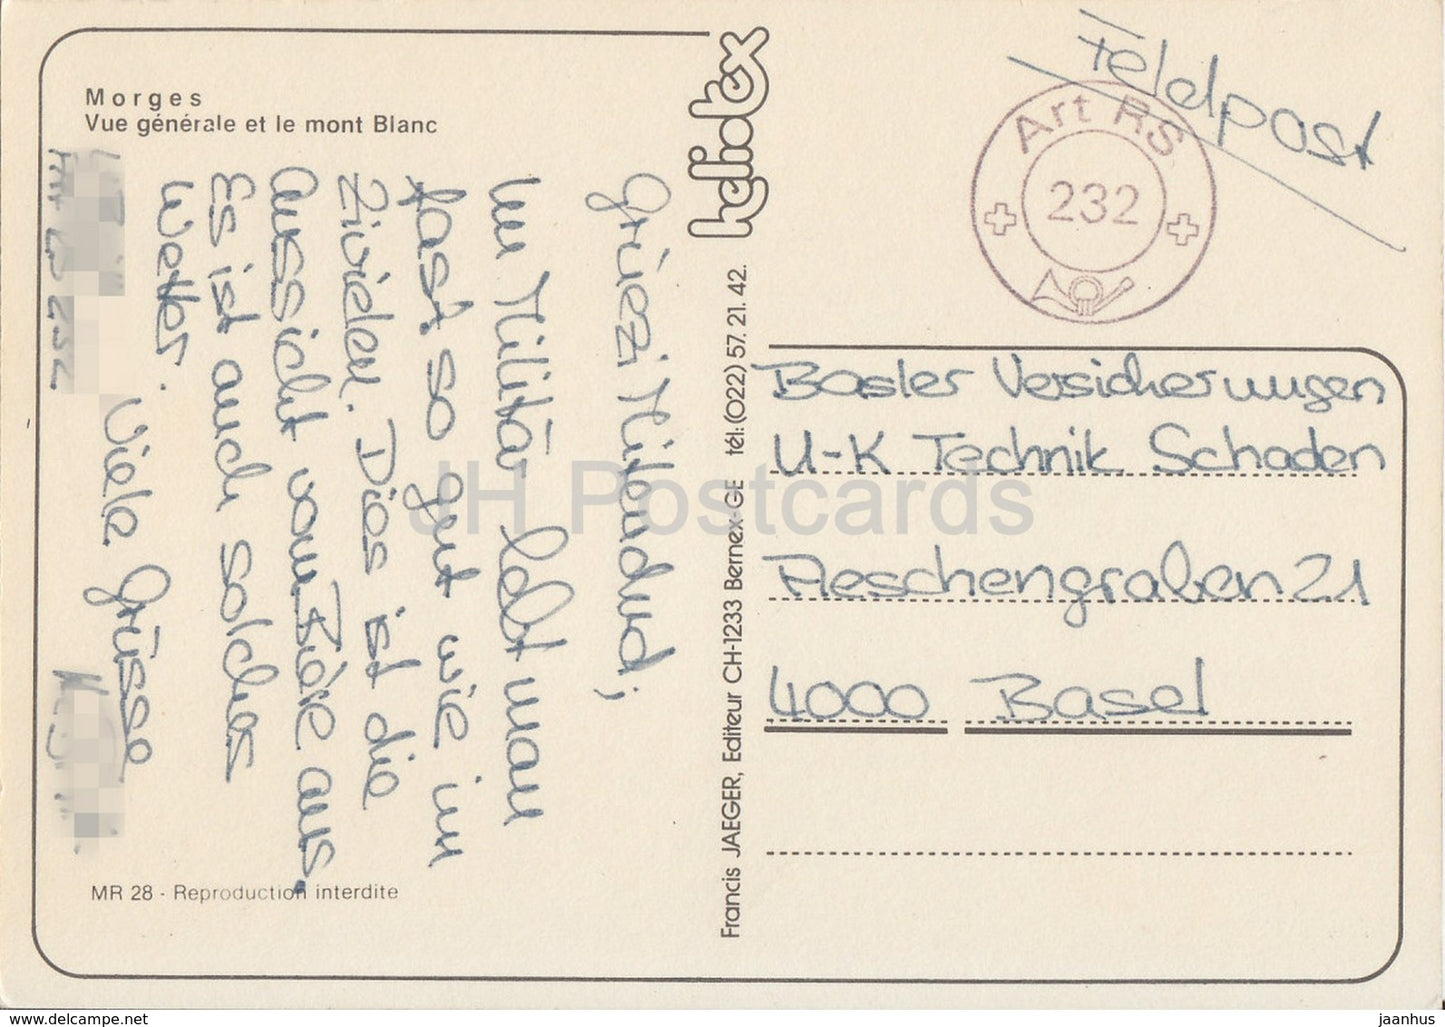 Morges
Vue générale et le mont Blanc
heliotex
Feldpost
Art RS
232
Grüezi Mitenand,
Im Militär lebt man
fast so gut wie im
Zivielen. Dies ist die
Aussicht vom Bière aus.
Es ist auch solches
Wetter.
Viele Grüsse
Basler Versicherungen
U-K Technik Schaden
Aeschengraben 21
4000 Basel
Francis JAEGER, Editeur CH-1233 Bernex-GE tél: (022) 57. 21. 42.
MR 28 - Reproduction interdite
JH Postcards
www.delcampe.net
jaanhus